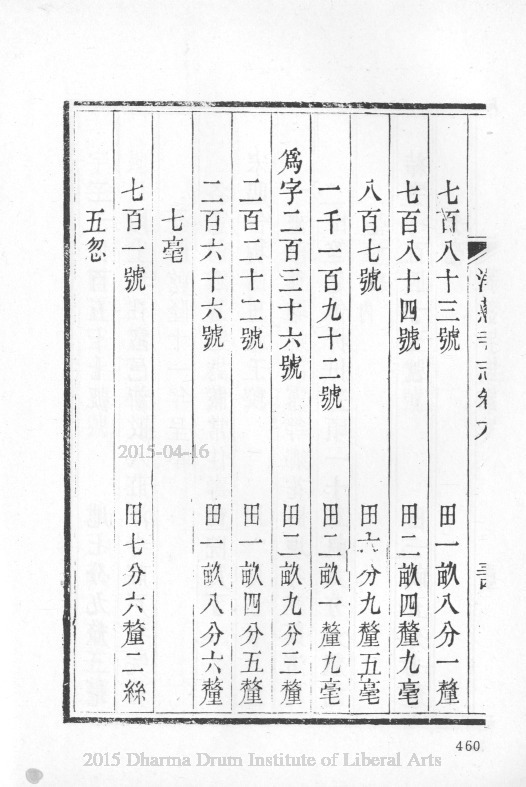 淨慈寺志卷六
七百八十三號 田一畝八分一釐
七百八十四號 田二畝四釐九毫
八百七號 田六分九釐五毫
一千一百九十二號 田二畝一釐九毫
爲字二百三十六號 田二畝九分三釐
二百二十二號 田一畝四分五釐
二百六十六號 田一畝八分六釐
七毫
七百一號 田七分六釐二絲
五忽
2015-04-16
460
2015 Dharma Drum Institute of Liberal Arts